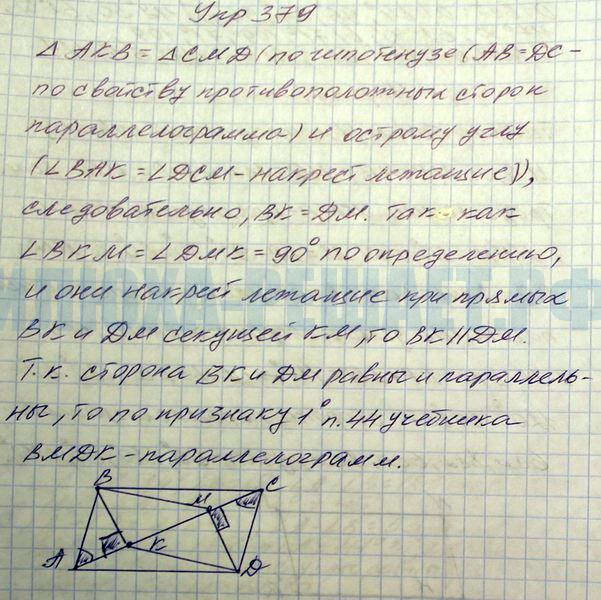 Упр 379
△ AKB = △CMD (по гипотенузе (AB=DC-
по свойству противоположных сторон
параллелограмма) и острому углу
(∠BAK = ∠DCM - накрест лежащие)),
следовательно, BK = DM. Так как
∠BKM = ∠DMK = 90° по определению,
и они накрест лежащие при прямых
BK и DM секущей KM, то BK || DM.
Т.к. сторона BK и DM равны и параллель-
ны, то по признаку 1° п.44 учебника
BMDK - параллелограмм.
B
C
M
K
A
D